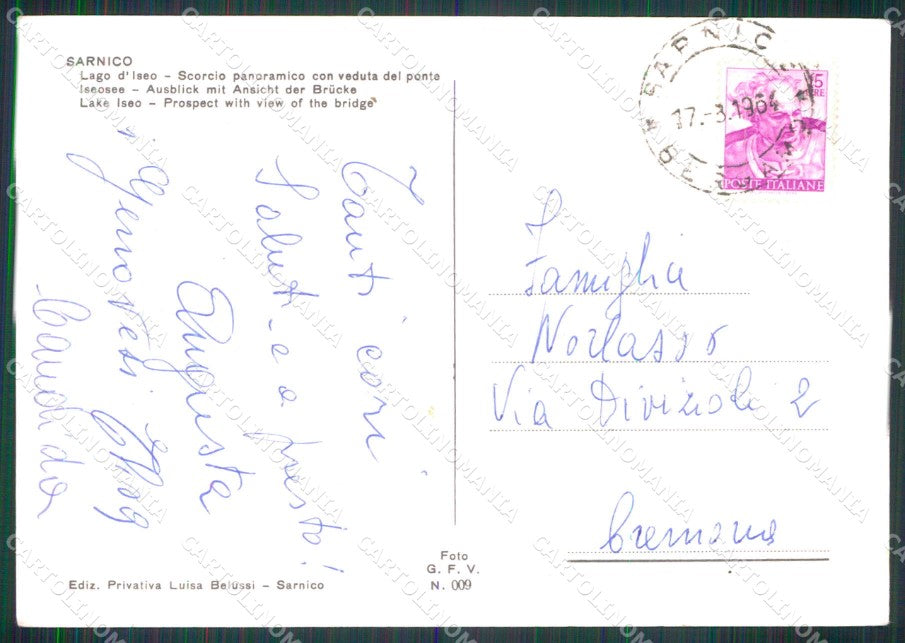 SARNICO
Lago d'Iseo – Scorcio panoramico con veduta del ponte
Iseosee – Ausblick mit Ansicht der Brücke
Lake Iseo – Prospect with view of the bridge
Tanti cari
Saluti e a presto!
Augusta
Candida
SARNICO
17.-3.1964
15
LIRE
POSTE ITALIANE
Famiglia
Via Divizioli 2
Cremona
Foto
G. F. V.
N. 009
Ediz. Privativa Luisa Belussi – Sarnico
CARTOLINOMANIA